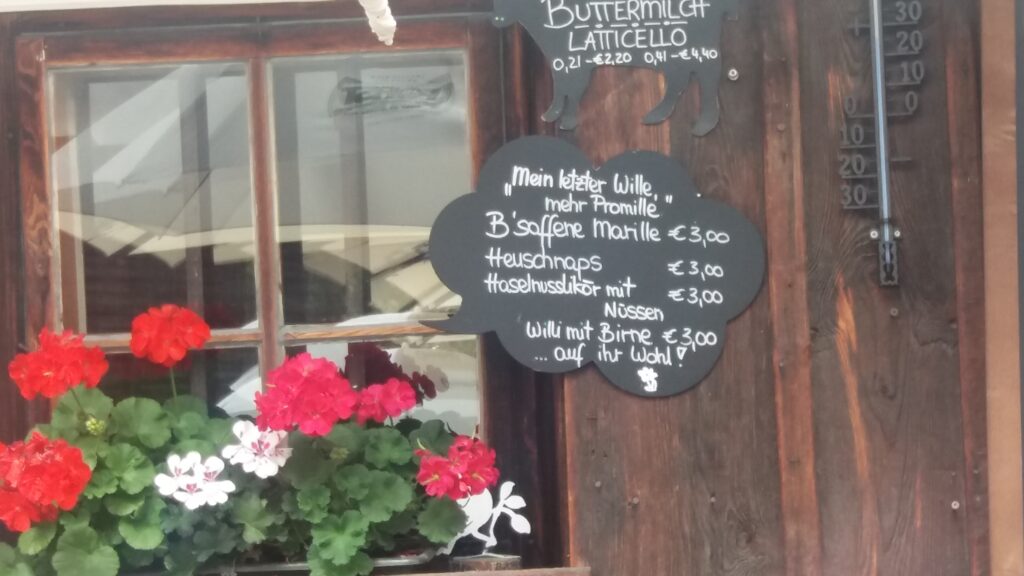 BUTTERMILCH
LATTICELLO
0,2l -€2,20 0,4l -€4,40
„Mein letzter Wille,
mehr Promille"
B'soffene Marille €3,00
Heuschnaps €3,00
Haselnusslikör mit
Nüssen €3,00
Willi mit Birne €3,00
... auf ihr Wohl!
30
20
10
0
10
20
30